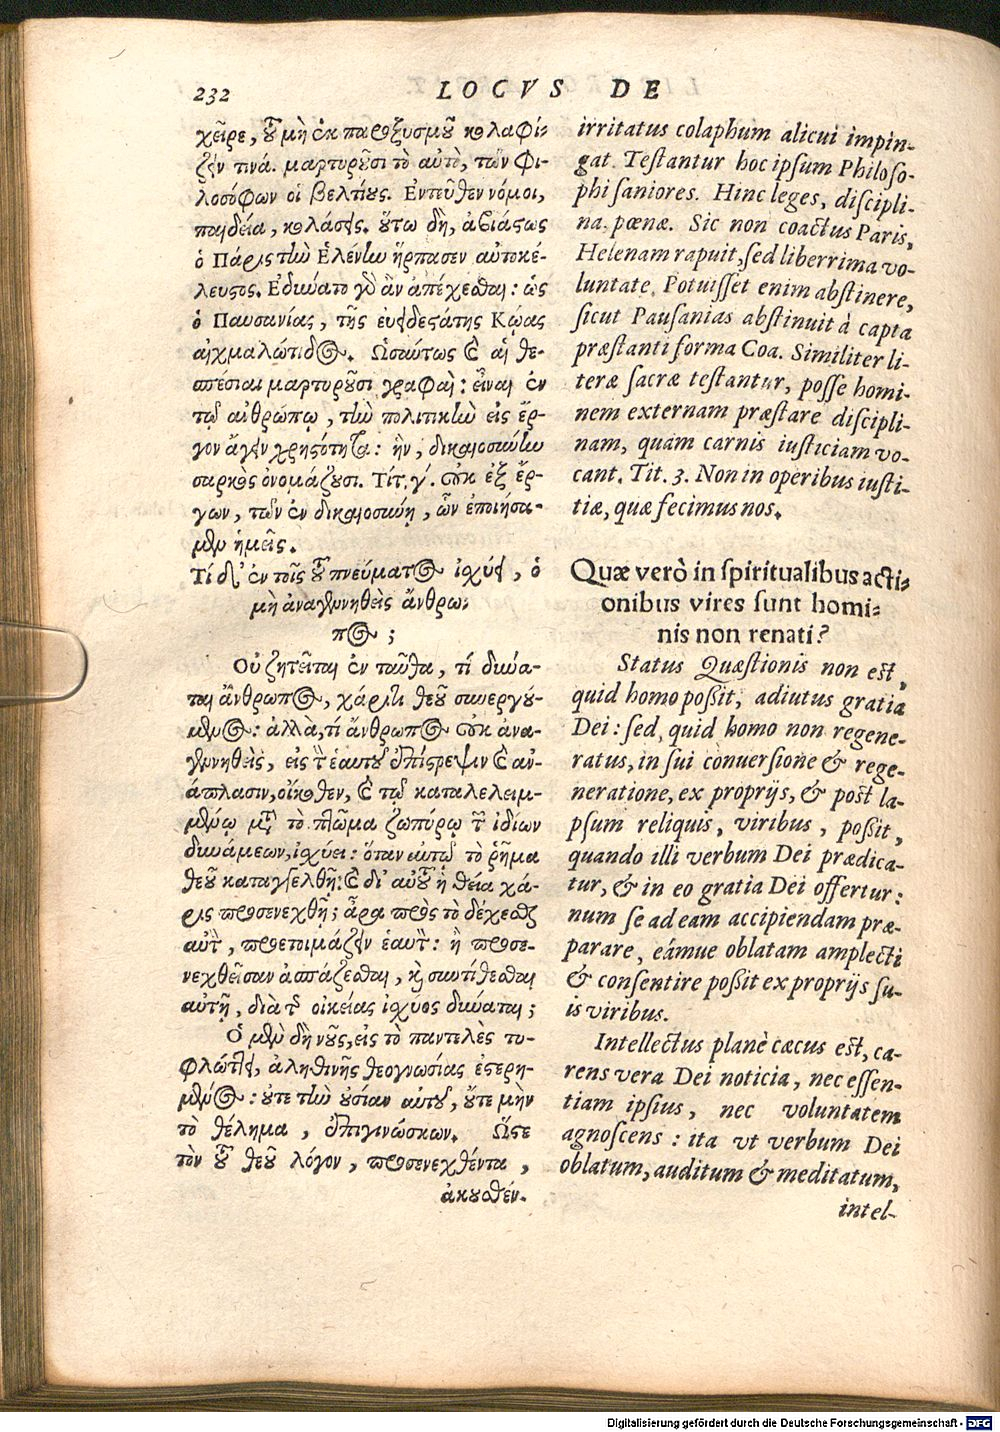 232 LOCVS DE
χεῖρε, τοῦ μὴ ἐκ παροξυσμοῦ κολαφί-
ζειν τινά. μαρτυροῦσι τὸ αὐτὸ, τῶν φι-
λοσόφων οἱ βελτίους. Ἐντεῦθεν νόμοι,
παιδεία, κολάσεις. οὕτω δὴ, ἀβιάστως
ὁ Πάρις τὴν Ἑλένην ἥρπασεν αὐτοκέ-
λευστος. Ἐδύνατο γὸ ἂν ἀπέχεσθαι: ὡς
ὁ Παυσανίας, τῆς ἐυειδεστάτης Κῴας
αἰχμαλώτιδος. Ὡσαύτως καὶ αἱ θε-
σπέσιαι μαρτυροῦσι γραφαὶ: εἶναι ἐν
τῷ ἀνθρώπῳ, τὴν πολιτικὴν εἰς ἔρ-
γον ἄγειν χρηστότητα: ἣν, δικαιοσύνην
σαρκὸς ὀνομάζουσι. Τίτ. γ´. οὐκ ἐξ ἔρ-
γων, τῶν ἐν δικαιοσύνῃ, ὧν ἐποιήσα-
μεν ἡμεῖς.
Τί δ' ἐν τοῖς τοῦ πνεύματος ἰχύει, ὁ
μὴ ἀναγεννηθεὶς ἄνθρω-
πος;
Οὐ ζητεῖται ἐν ταῦθα, τί δύνα-
ται ἄνθρωπος, χάριτι θεοῦ συνεργού-
μενος: ἀλλὰ, τί ἄνθρωπος οὐκ ἀνα-
γεννηθεὶς, εἰς τὴν ἑαυτοῦ ἐπίστρεψιν καὶ ἀν-
άπλασιν, οἴκοθεν, καὶ τῷ καταλελειμ-
μένῳ μετὰ τὸ πτῶμα ζωπύρῳ τῶν ἰδίων
δυνάμεων, ἰχύει: ὅταν αὐτῷ τὸ ῥῆμα
θεοῦ καταγγελθῇ: καὶ δι' αὐτοῦ ἡ θεία χά-
ρις προσενεχθῇ; ἆρα πρὸς τὸ δέχεσθαι
αὐτὴν, προετοιμάζειν ἑαυτὸν: ἢ προσε-
νεχθεῖσαν ἀσπάζεσθαι, καὶ συντίθεσθαι
αὐτῇ, διὰ τῆς οἰκείας ἰχύος δύναται;
Ὁ μὲν δὴ νοῦς, εἰς τὸ παντελὲς τυ-
φλώττει, ἀληθινῆς θεογνωσίας ἐστερη-
μένος: οὔτε τὴν οὐσίαν αὐτοῦ, οὔτε μὴν
τὸ θέλημα, ἐπιγινώσκων. Ὥστε
τὸν τοῦ θεοῦ λόγον, προσενεχθέντα,
ἀκουσθέν-
irritatus colaphum alicui impin-
gat. Testantur hoc ipsum Philoso-
phi saniores. Hinc leges, discipli-
na, pœnæ. Sic non coactus Paris,
Helenam rapuit, sed liberrima vo-
luntate. Potuisset enim abstinere,
sicut Pausanias abstinuit à capta
præstanti forma Coa. Similiter li-
teræ sacræ testantur, posse homi-
nem externam præstare discipli-
nam, quàm carnis iusticiam vo-
cant. Tit. 3. Non in operibus iusti-
tiæ, quæ fecimus nos.
Quæ verò in spiritualibus acti-
onibus vires sunt homi-
nis non renati?
Status Quæstionis non est,
quid homo possit, adiutus gratia
Dei: sed, quid homo non regene-
ratus, in sui conuersione & rege-
neratione, ex proprijs, & post la-
psum reliquis, viribus, possit,
quando illi verbum Dei prædica-
tur, & in eo gratia Dei offertur:
num se ad eam accipiendam præ-
parare, eámue oblatam amplecti
& consentire possit ex proprijs su-
is viribus.
Intellectus planè cæcus est, ca-
rens vera Dei noticia, nec essen-
tiam ipsius, nec voluntatem
agnoscens: ita vt verbum Dei
oblatum, auditum & meditatum,
intel-
Digitalisierung gefördert durch die Deutsche Forschungsgemeinschaft - DFG